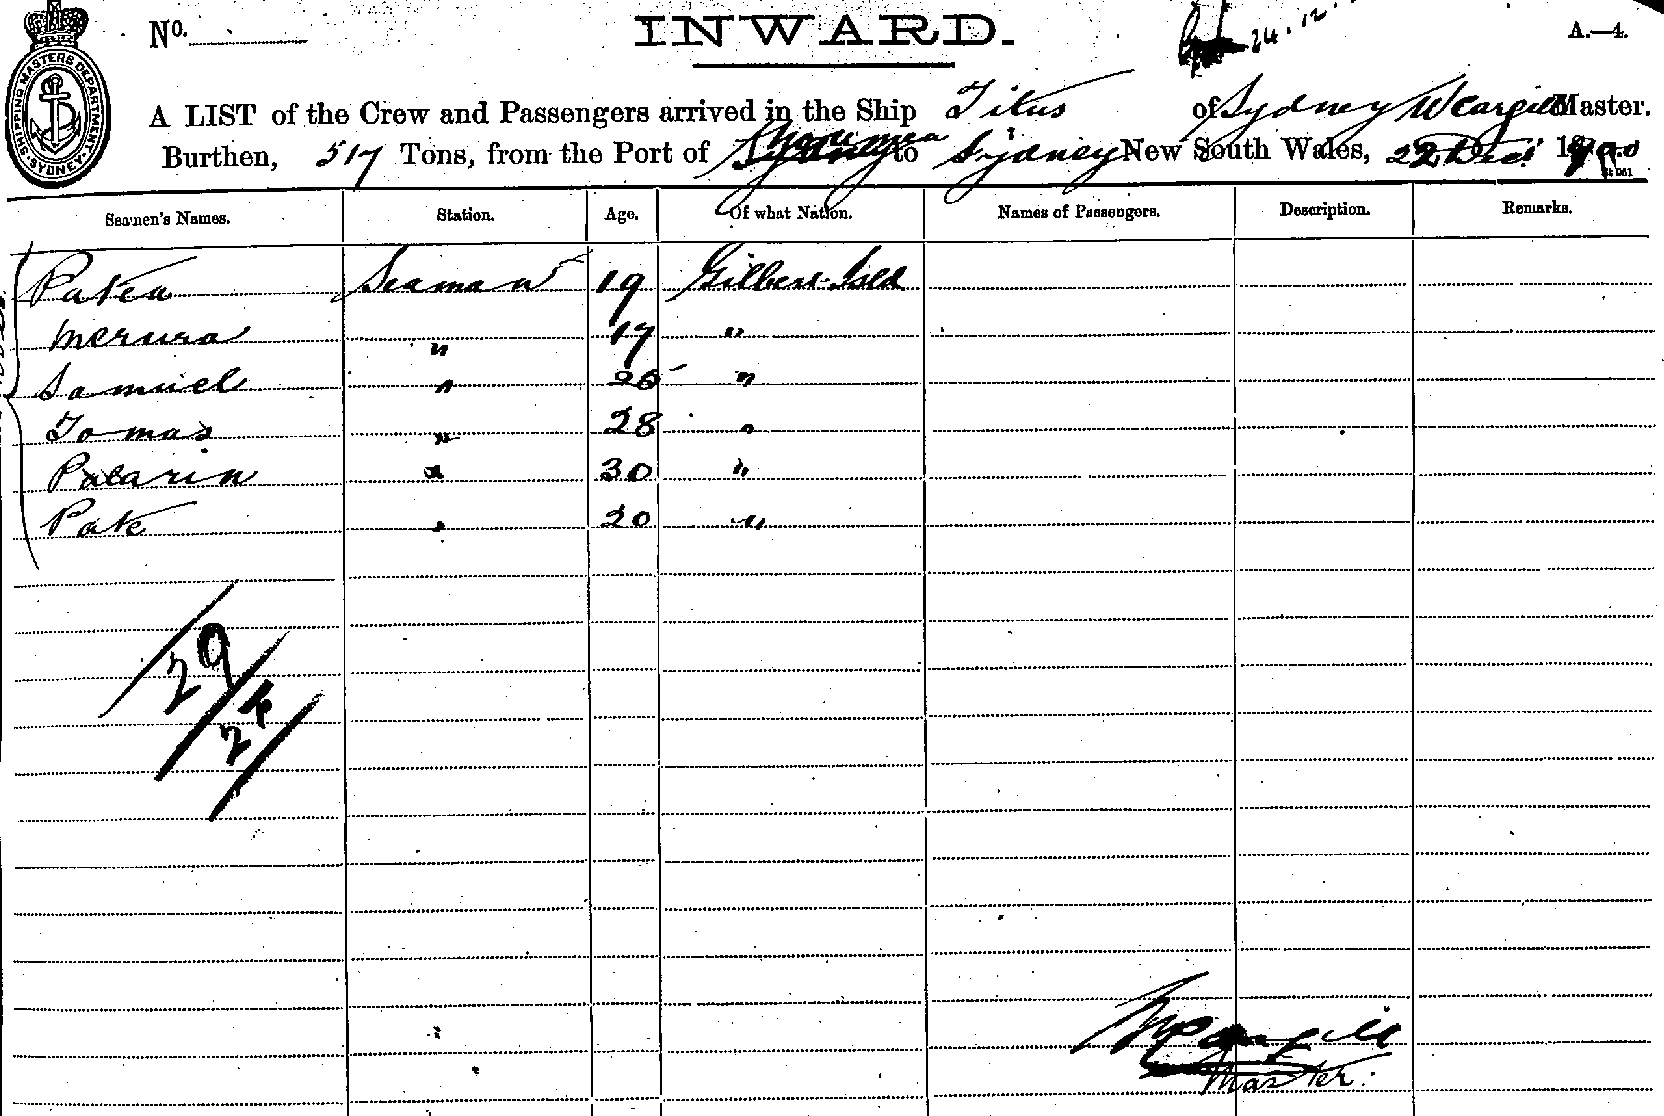 No.
INWARD.
24.12.
A.—4.
SHIPPING MASTERS DEPARTMENT
SYDNEY
A LIST of the Crew and Passengers arrived in the Ship Titus of Sydney W Cargill Master.
Burthen, 517 Tons, from the Port of to Sydney New South Wales, 22 Dec 1900
Seamen's Names. Station. Age. Of what Nation. Names of Passengers. Description. Remarks.
Patea Seaman 19 Gilbert Isld
Merura " 17 "
Samuel " 26 "
Tomas " 28 "
Patarin " 30 "
Pate " 20 "
29
24
W Cargill
Master.